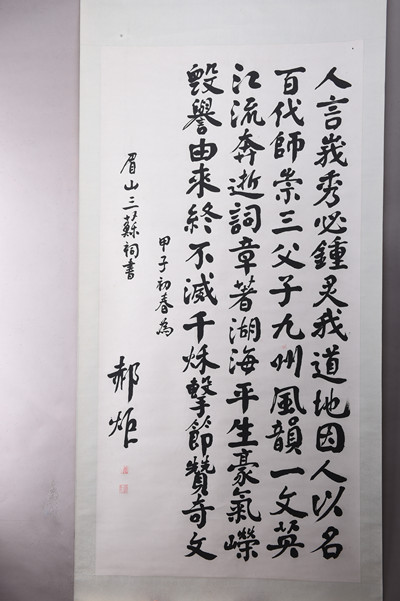 人言峩秀必鍾灵我道地因人以名
百代師崇三父子九州風韻一文英
江流奔逝詞章著湖海平生豪氣嶸
毀譽由來終不滅千秌擊節贊奇文
甲子初春為
眉山三蘇祠書
郝炬